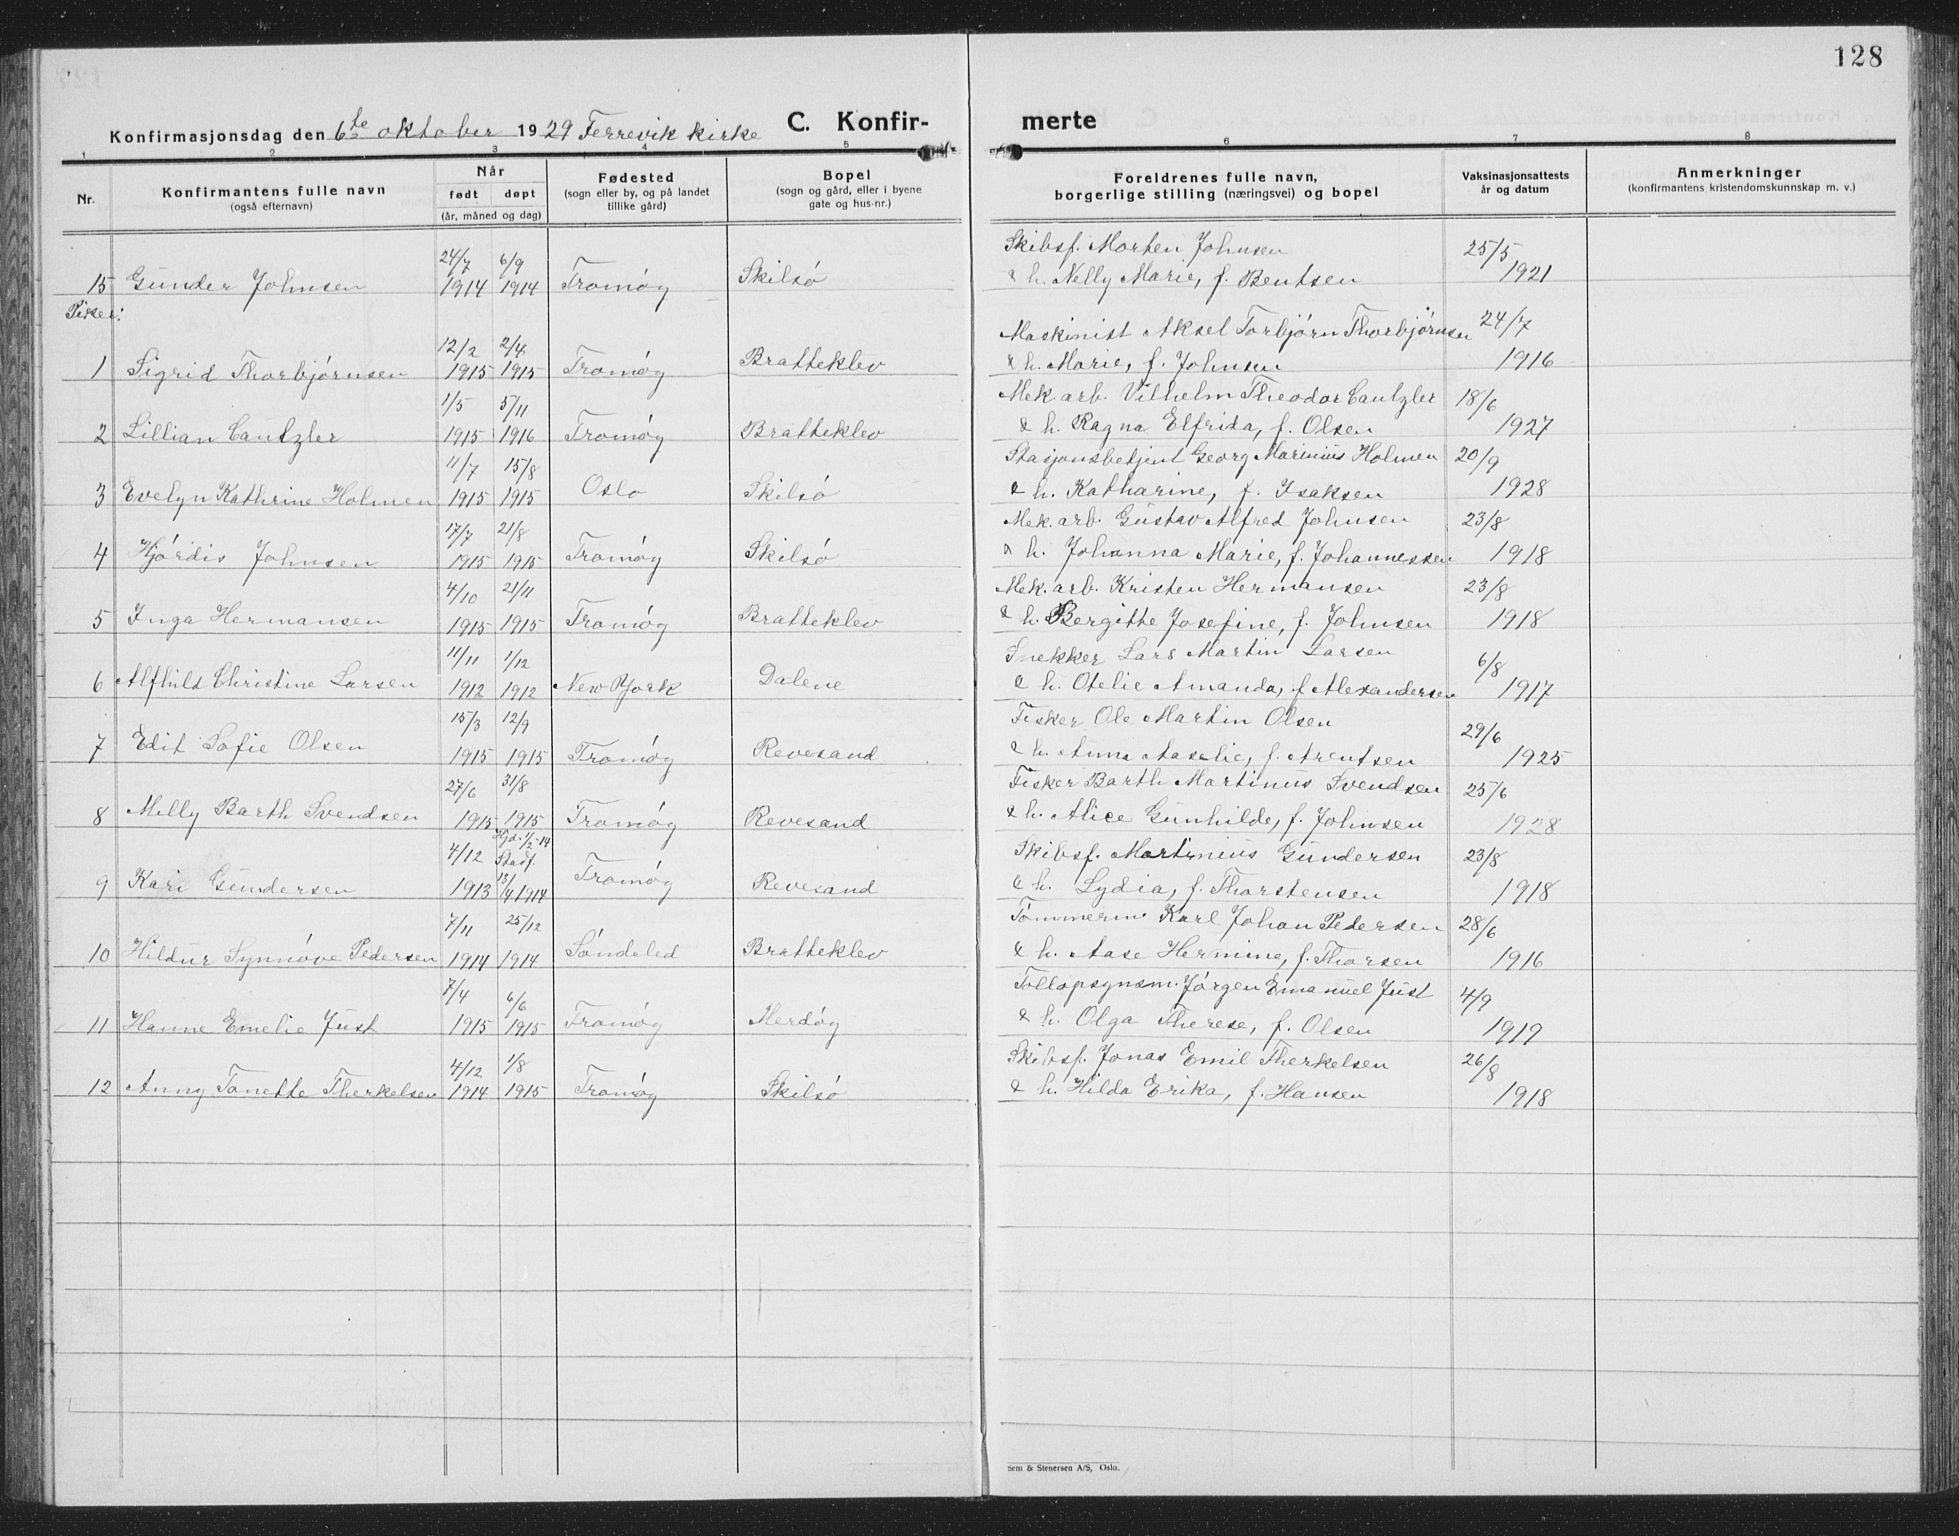 128
Konfirmasjonsdag den 6te oktober 1929 Færrevik kirke C. Konfir-merte
1 2 3 4 5 6 7 8
Nr.
Konfirmantens fulle navn
(også efternavn)
Når
født døpt
(år, måned og dag)
Fødested
(sogn eller by, og på landet
tillike gård)
Bopel
(sogn og gård, eller i byene
gate og hus-nr.)
Foreldrenes fulle navn,
borgerlige stilling (næringsvei) og bopel
Vaksinasjonsattests
år og datum
Anmerkninger
(konfirmantens kristendomskunnskap m. v.)
24/7 6/9 Skibsf. Morten Johnsen 25/5
15 Gunder Johnsen 1914 1914 Tromøy Skilsø & h. Nelly Marie, f. Bentsen 1921
Piker:
12/2 2/4 Maskinist Aksel Torbjørn Thorbjørnsen 24/7
1 Sigrid Thorbjørnsen 1915 1915 Tromøy Bratteklev & h. Marie, f. Johnsen 1916
1/5 5/11 Mek. arb. Vilhelm Theodor Cantzler 18/6
2 Lillian Cantzler 1915 1916 Tromøy Bratteklev & h. Ragna Elfrida, f. Olsen 1927
11/7 15/8 Stasjonsbetjent Georg Marinius Holmen 20/9
3 Evelyn Kathrine Holmen 1915 1915 Oslo Skilsø & h. Katharine, f. Isaksen 1928
17/7 21/8 Mek. arb. Gustav Alfred Johnsen 23/8
4 Hjørdis Johnsen 1915 1915 Tromøy Skilsø & h. Johanna Marie, f. Johannessen 1918
4/10 21/11 Mek. arb. Kristen Hermansen 23/8
5 Inga Hermansen 1915 1915 Tromøy Bratteklev & h. Bergitte Josefine, f. Johnsen 1918
11/11 1/12 Snekker Lars Martin Larsen 6/8
6 Alfhild Christine Larsen 1912 1912 New York Dalene & h. Otelie Amanda, f. Alexandersen 1917
15/3 12/9 Fisker Ole Martin Olsen 29/6
7 Edit Sofie Olsen 1915 1915 Tromøy Revesand & h. Anna Aaselie, f. Arentsen 1925
27/6 31/8 Fisker Barth Martinus Svendsen 25/6
8 Milly Barth Svendsen 1915 1915 Tromøy Revesand & h. Alice Gunhilde, f. Johnsen 1928
4/12 Hjd. 1/2-14 Stadf. Skibsf. Martinius Gundersen 23/8
9 Kari Gundersen 1913 13/4 1914 Tromøy Revesand & h. Lydia, f. Thorstensen 1918
7/11 25/12 Tømmerm. Karl Johan Pedersen 28/6
10 Hildur Synnøve Pedersen 1914 1914 Søndeled Bratteklev & h. Aase Hermine, f. Thorsen 1916
7/4 6/6 Tollopsynsm. Jørgen Emanuel Just 4/9
11 Hanne Emelie Just 1915 1915 Tromøy Merdøy & h. Olga Therese, f. Olsen 1919
4/12 1/8 Skibsf. Jonas Emil Therkelsen 26/8
12 Anny Tonette Therkelsen 1914 1915 Tromøy Skilsø & h. Hilda Erika, f. Hansen 1918
Sem & Stenersen A/S, Oslo.